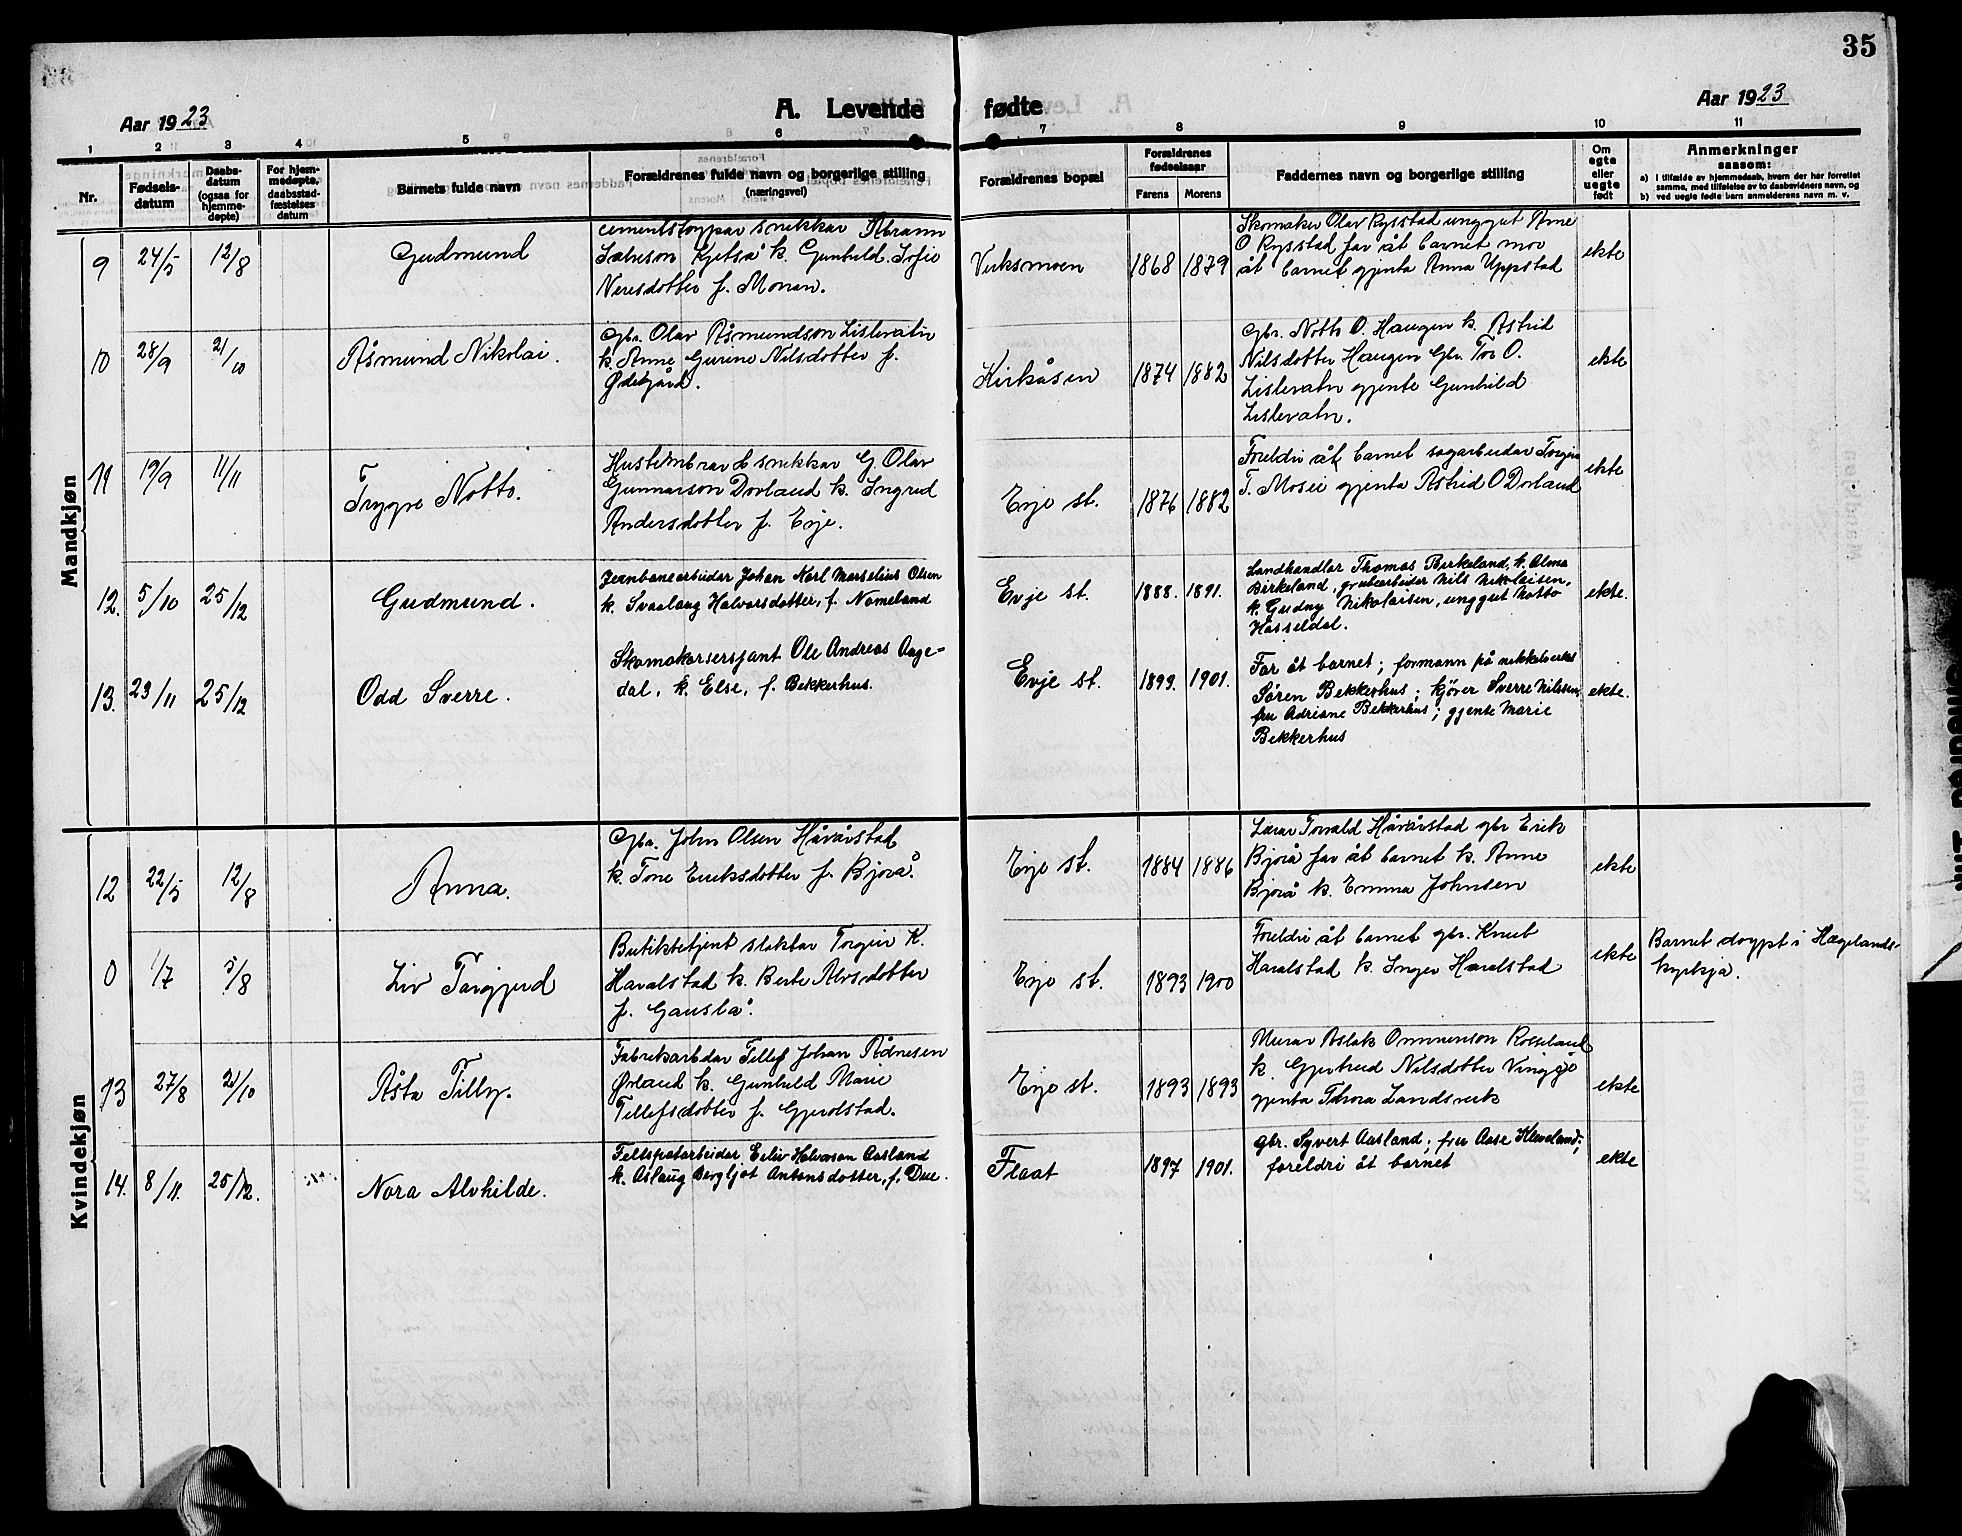 35
Aar 1923
A. Levende fødte
Aar 1923
1 2 3 4 5 6 7 8 9 10 11
Nr.
Fødsels-
datum
Daabs-
datum
(ogsaa for
hjemme-
døpte)
For hjem-
medøpte,
daabsstad-
fæstelses
datum
Barnets fulde navn
Forældrenes fulde navn og borgerlige stilling
(næringsvei)
Forældrenes bopæl
Forældrenes
fødselsaar
Farens Morens
Faddernes navn og borgerlige stilling
Om
egte
eller
uegte
født
Anmerkninger
saasom:
a) i tilfælde av hjemmedaab, hvem der har forrettet
samme, med tilføielse av to daabsvidners navn, og
b) ved uegte fødte barn anmelderens navn m. v.
Mandkjøn
9 24/5 12/8
Gudmund
cementstøypar snikkar Abraam
Salveson Kjetså k. Gunhild Sofie
Neresdotter f. Monan.
Verksmoen
1868 1879
Skomaker Olav Rysstad unggut Arne
O Rysstad far åt barnet mor
åt barnet gjenta Anna Uppstad
ekte
10 28/9 21/10
Åsmund Nikolai.
Gbr. Olav Åsmundson Lislevatn
k. Anne Gurine Nilsdotter f.
Ødegård.
Kirkåsen
1874 1882
Gbr. Notto O. Haugen k. Astrid
Nilsdotter Haugen Gbr. Tor O.
Lislevatn gjente Gunhild
Lislevatn.
ekte
11 19/9 11/11
Trygve Notto.
snikkar G. Olav
Gunnarson Dovland k. Ingrid
Andersdotter f. Evje.
Evje st.
1876 1882
Foreldri åt barnet sagarbeidar Torgeir
T. Mosei gjenta Astrid O Dovland
ekte
12. 5/10 25/12
Gudmund.
Jernbanearbeider Johan Karl Marselius Olsen
k. Svaalaug Halvorsdotter, f. Nomeland
Evje st.
1888. 1891.
Landhandlar Thomas Birkeland, k. Alma
Birkeland, grubearbeider Nils Nikolaisen,
k. Gudny Nikolaisen, unggut Notto
Hasseldal.
ekte.
13. 23/11 25/12
Odd Sverre.
Skomakarsersjant Ole Andreas Aage-
dal, k. Else, f. Bekkerhus.
Evje st.
1899. 1901.
Far åt barnet; formann på nikkelverket
Søren Bekkerhus; kjører Sverre Nilssen,
fru Adriane Bekkerhus; gjente Marie
Bekkerhus
ekte.
Kvindekjøn
12 22/5 12/8
Anna.
Gbr. John Olsen Håvårstad
k. Tone Eriksdotter f. Bjorå.
Evje st.
1884 1886
Lærar Torvald Håvårstad gbr Erik
Bjorå far åt barnet k. Anne
Bjorå k. Emma Johnsen
ekte
0 1/7 5/8
Liv Torgjerd
Butikbetjent slaktar Torgeir K.
Haralstad k. Berte Alvsdotter
f. Gauslå.
Evje st.
1893 1900
Foreldri åt barnet gbr. Knut
Haralstad k. Inger Haralstad
ekte
Barnet døypt i Hægelands-
kyrkja.
13 27/8 21/10
Åsta Tilly.
Fabrikarbdar Tellef Johan Ådnesen
Ørland k. Gunhild Marie
Tellefsdotter f. Gjerolstad.
Evje st.
1893 1893
Murar Aslak Ommunson Rosseland
k. Gjertrud Nilsdotter Vingje
gjenta Thora Landsverk
ekte
14. 8/11. 25/12.
Nora Alvhilde.
Feltspatarbeider Eiliv Halvorson Aasland
k. Aslaug Bergljot Antonsdotter, f. Due.
Flaat
1897 1901.
gbr. Syvert Aasland; fru Aase Kleveland;
foreldri åt barnet
ekte